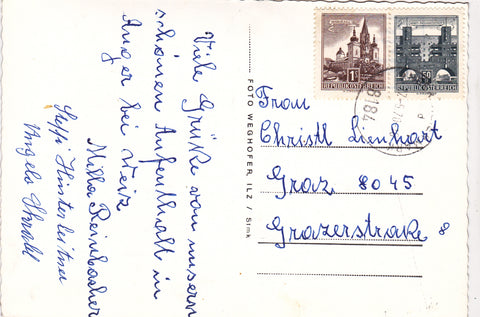 Viele Grüße von unserm
schönen Aufenthalt in
Anger bei Weiz
Milla Reinbacher
Steffi Hinterleitner
Angela
FOTO WEGHOFER, ILZ / Stmk.
1 S
REPUBLIK ÖSTERREICH
50
REPUBLIK ÖSTERREICH
8184
Frau
Christl Lienhart
Graz 8045
Grazerstraße 8